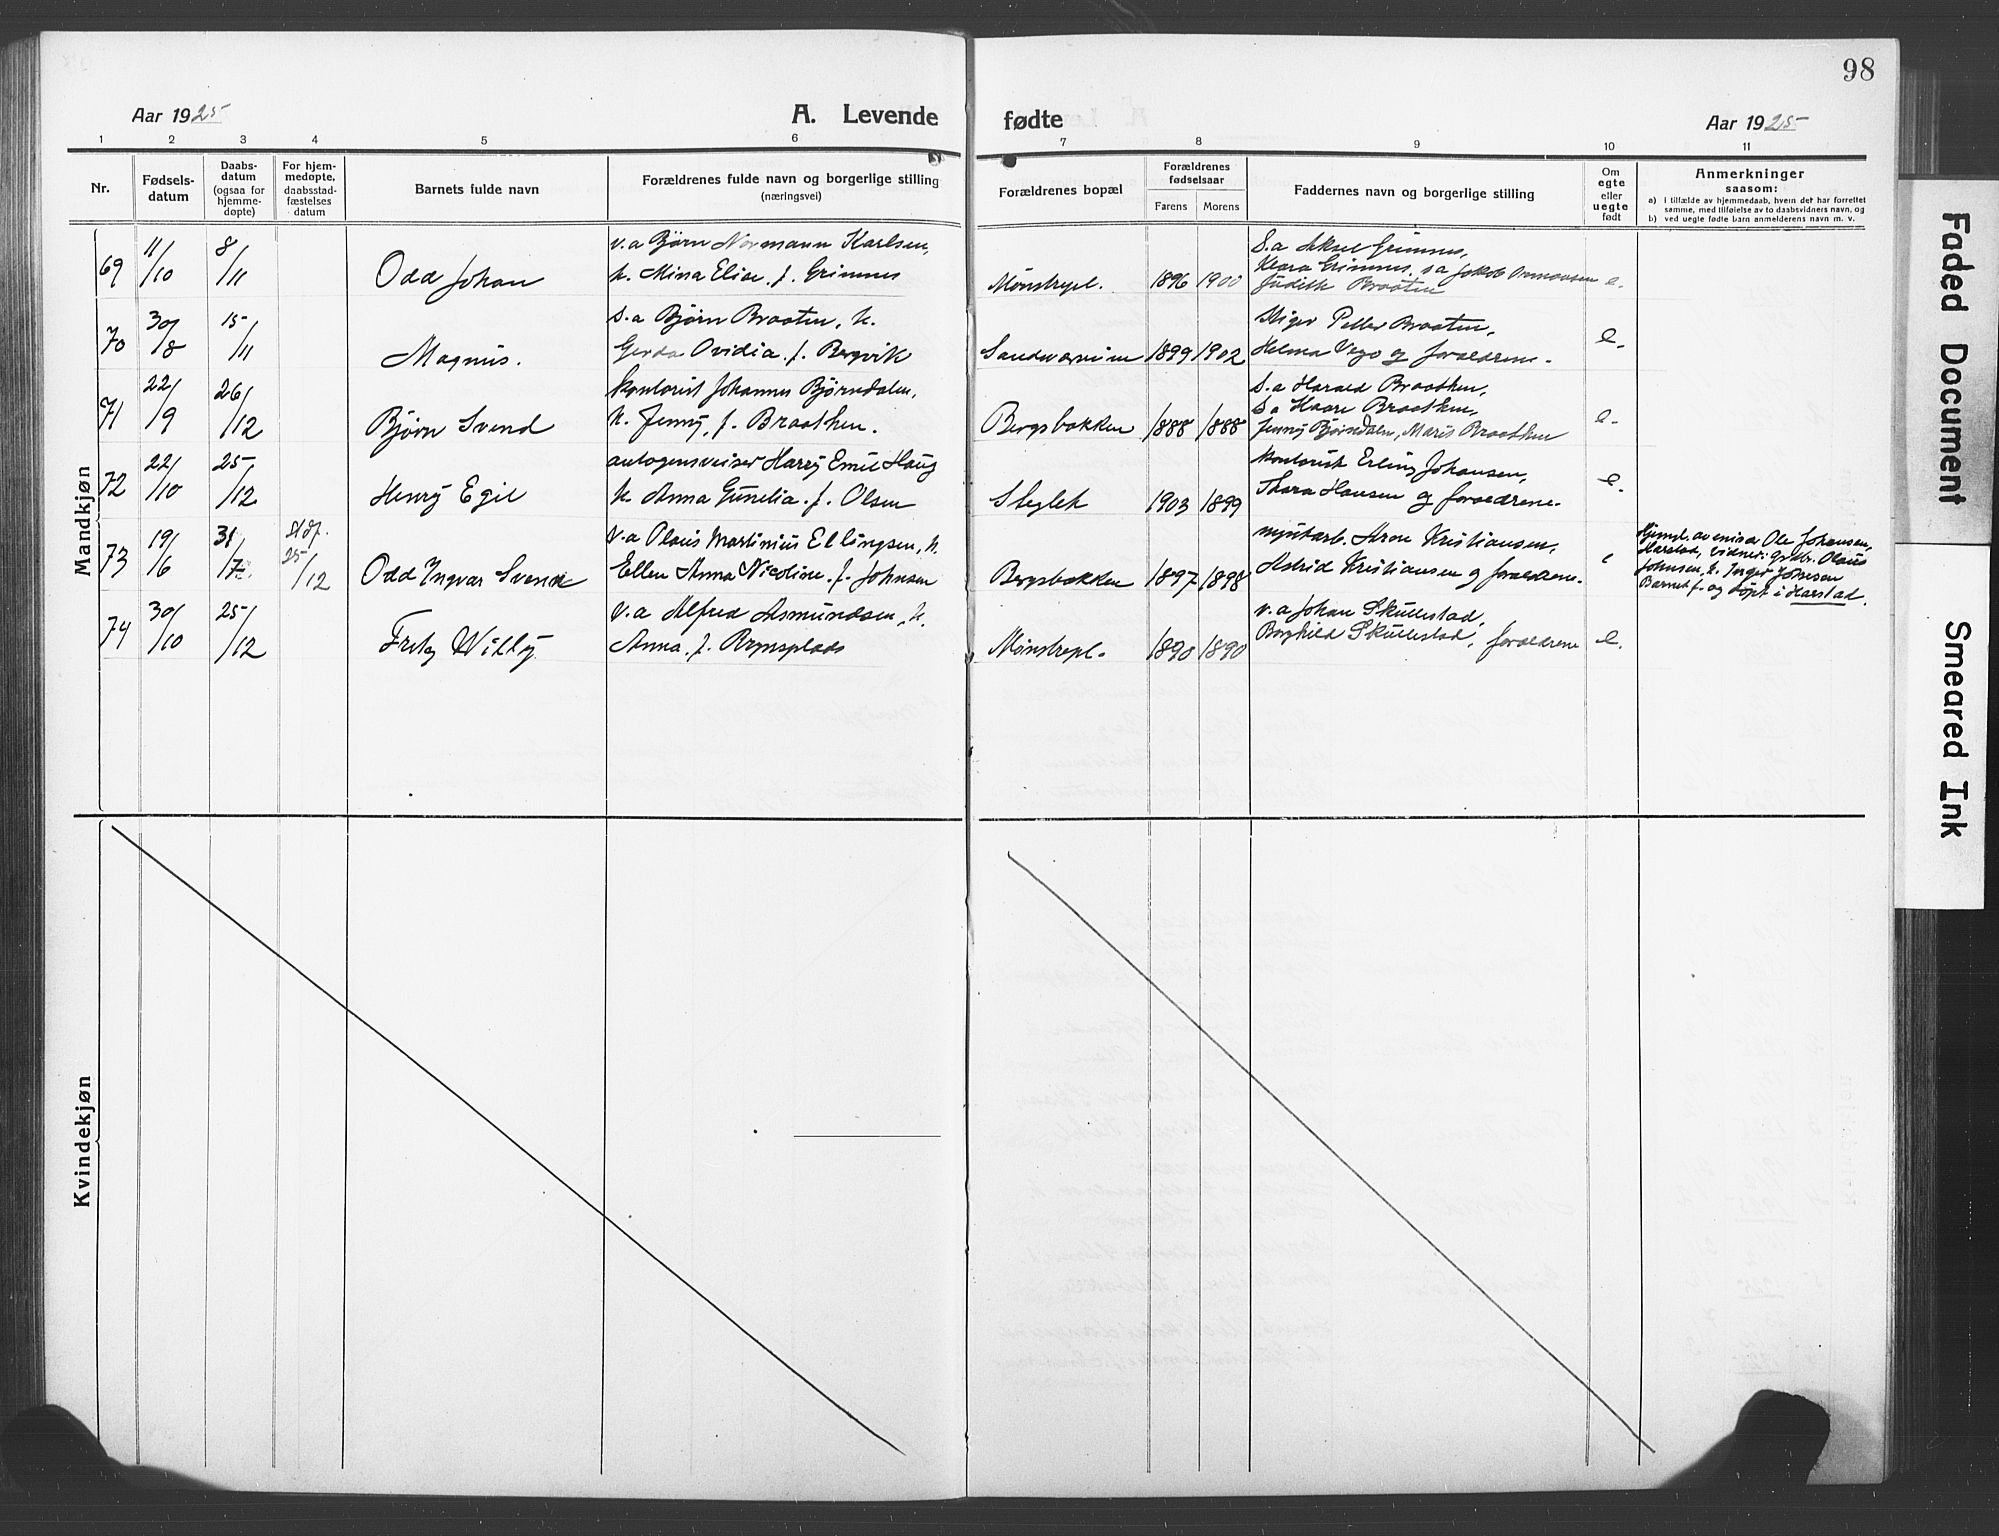 98
Aar 1925
A. Levende
fødte
Aar 1925
1 2 3 4 5 6 7 8 9 10 11
Nr.
Fødsels-
datum
Daabs-
datum
(ogsaa for
hjemme-
døpte)
For hjem-
medøpte,
daabsstad-
fæstelses
datum
Barnets fulde navn
Forældrenes fulde navn og borgerlige stilling
(næringsvei)
Forældrenes bopæl
Forældrenes
fødselsaar
Farens Morens
Faddernes navn og borgerlige stilling
Om
egte
eller
uegte
født
Anmerkninger
saasom:
a) i tilfælde av hjemmedaab, hvem det har forrettet
samme, med tilføielse av to daabsvidners navn, og
b) ved uegte fødte barn anmelderens navn m. v.
Mandkjøn
69 11/10 8/11 Odd Johan
v.a Bjørn Normann Karlsen,
h. Mina Elise f. Grimnes
Mønstrepl. 1896 1900
S.a Aksel Grimnes,
Klara Grimnes, s.a Jakob
Judith Braaten
e.
70 30/8 15/11 Magnus.
s.a Bjørn Braaten, h.
Gerda Ovidia f. Bergvik
1899 1902
Petter Braaten,
Helma Vego og forældrene.
e.
71 22/9 26/12 Bjørn Svend
kontorist Johannes Bjørndalen,
h. Jenny, f. Braathen.
Bergsbakken 1888 1888
S.a Harald Braathen,
S.a Haare Braathen,
Jenny Bjørndalen, Maris Braathen
e.
72 22/10 25/12 Henry Egil
autogensveiser Harry Emil Haug
h. Anna Gunelia f. Olsen
Steglek 1903 1899
kontorist Erling Johansen,
Thora Hansen og forældrene.
e.
73 19/6 31/7 stdf. 25/12 Odd Ingvar Svend
v.a Olaus Martinius Ellingsen, h.
Ellen Anna Nicoline f. Johnsen
Bergsbakken 1897 1898
myntarb. Aron Kristiansen,
Astrid Kristiansen og forældrene.
e
Hjemmd. av emisær Ole Johansen,
Harstad, vidner: grdbr. Olaus
Johnsen, h. Inger Johnsen
Barnet f. og døpt i Harstad.
74 30/10 25/12 Fritz Willy
v.a Alfred Asmundsen, h.
Anna f. Brynsplads
Mønstrepl. 1890 1890
v.a Johan Skullestad,
Borghild Skullestad, forældrene
e.
Kvindekjøn
Faded Document
Smeared Ink